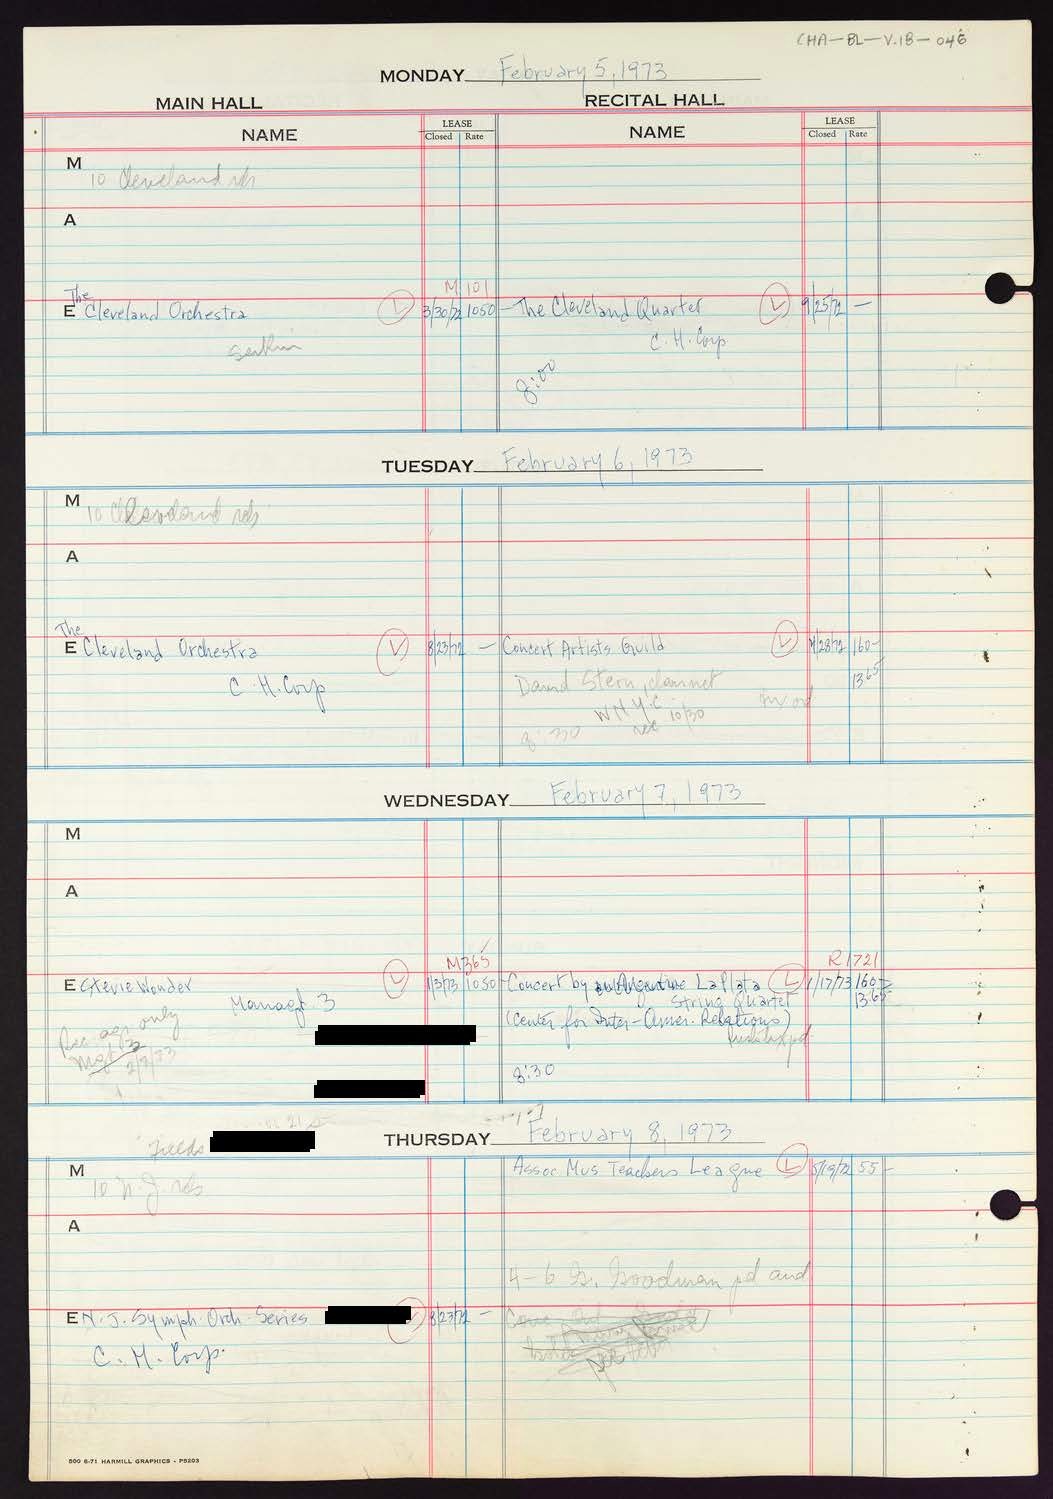 CHA-BL-V.18-046
MONDAY February 5, 1973
MAIN HALL RECITAL HALL
NAME LEASE Closed Rate NAME LEASE Closed Rate
M 10 Cleveland reh
A
M 101
E The Cleveland Orchestra L 3/30/72 1050- The Cleveland Quarter L 9/25/72 -
Serkin C.H. Corp
8:00
TUESDAY February 6, 1973
M 10 Cleveland reh
A
E The Cleveland Orchestra L 8/23/72 - Concert Artists Guild L 4/28/72 160-
C.H. Corp David Stern, clarinet 1365
WNYC
8:30 rec 10/30
WEDNESDAY February 7, 1973
M
A
M 365 R 1721
E Stevie Wonder L 1/3/73 1050- Concert by an Argentine La Plata L 1/17/73 160-
Managt 3 String Quartet 13.65
Rec agr only (Center for Inter-Amer. Relations)
Mgt
2/2/73
8:30
Fields
THURSDAY February 8, 1973
M Assoc Mus Teachers League L 5/19/72 55-
10 N.J. reh
A
4-6 G. Goodman pd aud
E N.J. Symph. Orch. Series L 8/23/72 -
C.H. Corp.
500 6-71 HARMILL GRAPHICS - P5203